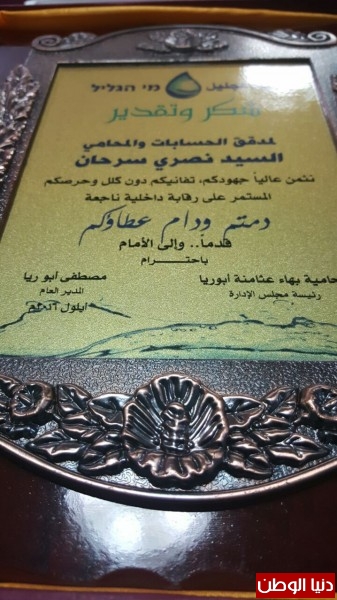 الجليل מי הגליל
شكر وتقدير
لمدقق الحسابات والمحامي
السيد نصري سرحان
نثمن عالياً جهودكم، تفانيكم دون كلل وحرصكم
المستمر على رقابة داخلية ناجعة
دمتم ودام عطاؤكم
قدماً.. وإلى الأمام
باحترام
حامية بهاء عثامنة أبوريا
رئيسة مجلس الإدارة
مصطفى أبو ريا
المدير العام
أيلول
دنيا الوطن